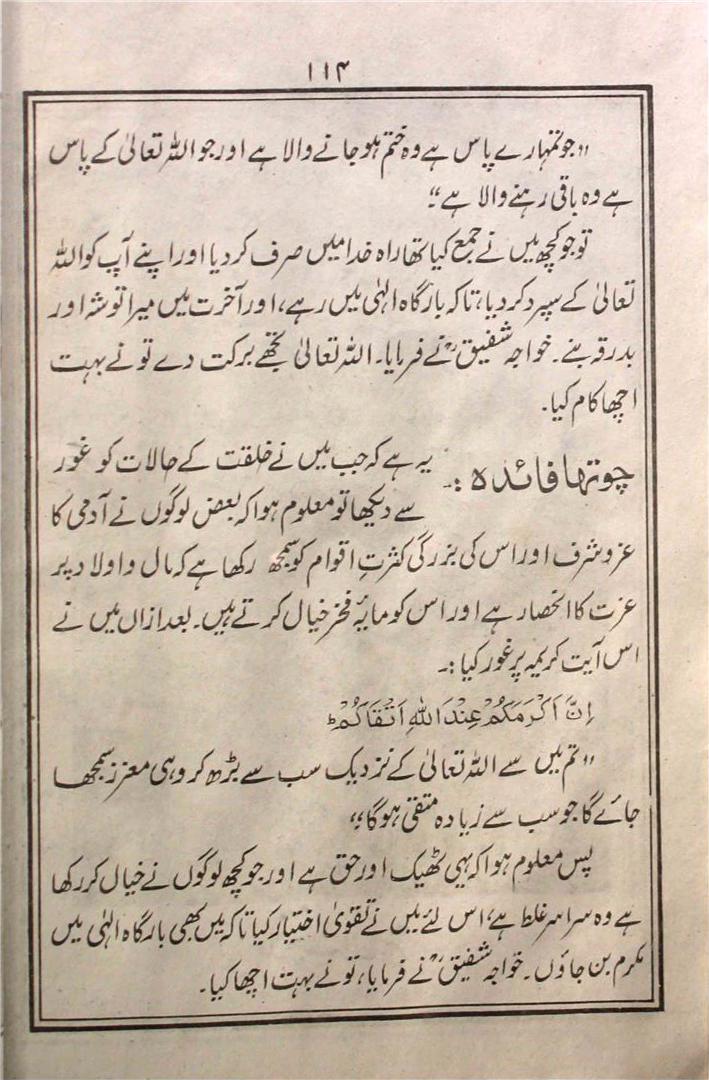 ۱۱۴
"جو تمہارے پاس ہے وہ ختم ہو جانے والا ہے اور جو اللہ تعالیٰ کے پاس
ہے وہ باقی رہنے والا ہے"۔
تو جو کچھ میں نے جمع کیا تھا راہ خدا میں صرف کر دیا اور اپنے آپ کو اللہ
تعالیٰ کے سپرد کر دیا، تاکہ بارگاہ الہٰی میں رہے، اور آخرت میں میرا توشہ اور
بدرقہ بنے۔ خواجہ شفیقؒ نے فرمایا۔ اللہ تعالیٰ تجھے برکت دے تو نے بہت
اچھا کام کیا۔
چوتھا فائدہ :۔ یہ ہے کہ جب میں نے خلقت کے حالات کو غور
سے دیکھا تو معلوم ہوا کہ بعض لوگوں نے آدمی کا
عز و شرف اور اس کی بزرگی کثرتِ اقوام کو سمجھ رکھا ہے کہ مال و اولاد پر
عزت کا انحصار ہے اور اس کو مایۂ فخر خیال کرتے ہیں۔ بعد ازاں میں نے
اس آیت کریمہ پر غور کیا :۔
اِنَّ اَکْرَمَکُمْ عِنْدَ اللّٰہِ اَتْقَاکُمْ ؕ
"تم میں سے اللہ تعالیٰ کے نزدیک سب سے بڑھ کر وہی معزز سمجھا
جائے گا جو سب سے زیادہ متقی ہوگا"
پس معلوم ہوا کہ یہی ٹھیک اور حق ہے اور جو کچھ لوگوں نے خیال کر رکھا
ہے وہ سراسر غلط ہے، اس لئے میں نے تقویٰ اختیار کیا تاکہ میں بھی بارگاہ الہٰی میں
مکرم بن جاؤں۔ خواجہ شفیقؒ نے فرمایا، تو نے بہت اچھا کیا۔